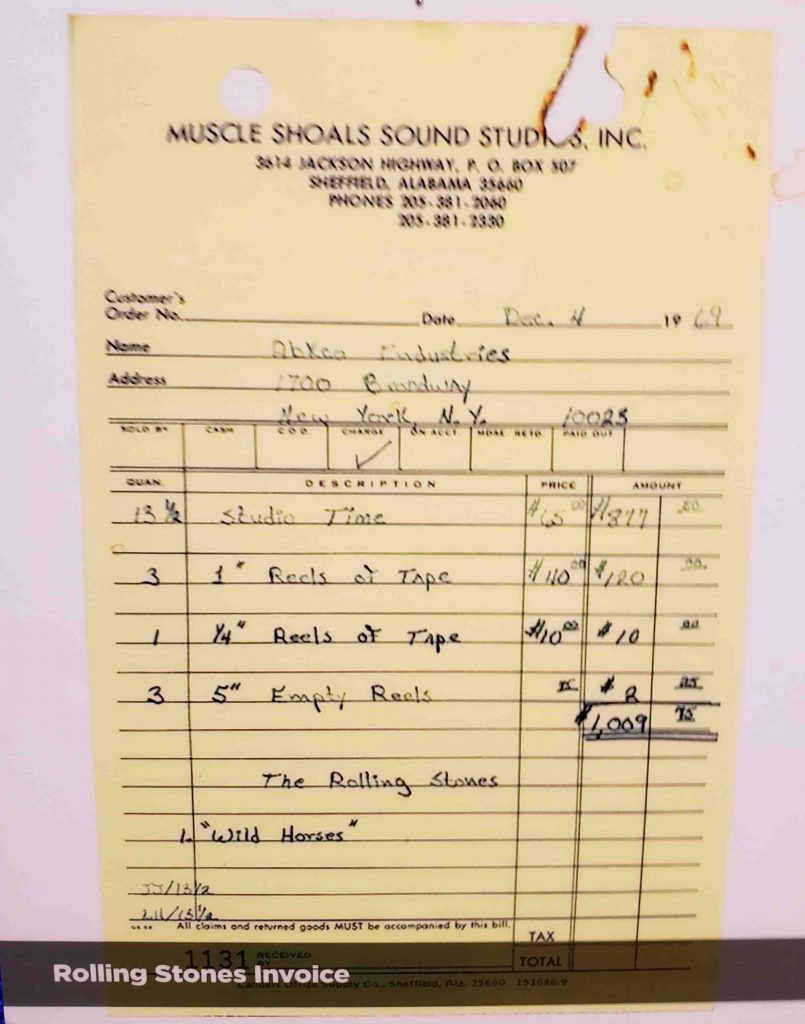 MUSCLE SHOALS SOUND STUDIOS, INC.
3614 JACKSON HIGHWAY, P. O. BOX 507
SHEFFIELD, ALABAMA 35660
PHONES 205-381-2060
205-381-2330
Customer's
Order No. Date Dec. 4 19 69
Name Abkco Industries
Address 1700 Broadway
New York, N.Y. 10023
SOLD BY CASH C O D CHARGE ON ACCT. MDSE. RETD. PAID OUT
QUAN. DESCRIPTION PRICE AMOUNT
13 ½ Studio Time $65 00 $877
3 1" Reels of Tape $40 00 $120 00
1 ¼" Reels of Tape $10 00 $10 00
3 5" Empty Reels $2
$1,009 75
The Rolling Stones
1. "Wild Horses"
JJ/13½
/13½
All claims and returned goods MUST be accompanied by this bill.
TAX
1131 RECEIVED BY TOTAL
Rolling Stones Invoice
Office Supply Co., Sheffield, Ala. 35660 151086-9